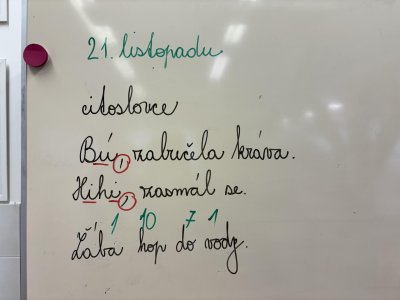 21. listopadu
citoslovce
Bú, zabučela kráva.
Hihi, zasmál se.
1 10 7 1
Žába hop do vody.